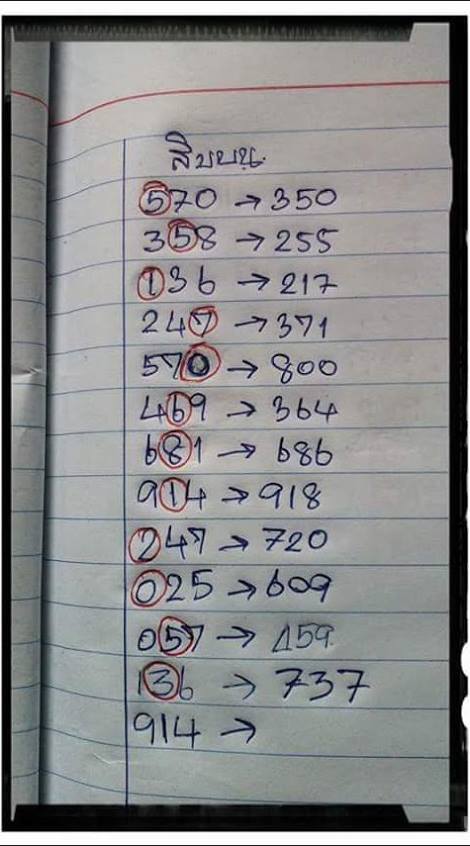 สิบบน
570 → 350
358 → 255
136 → 217
247 → 371
570 → 800
469 → 364
681 → 686
914 → 918
247 → 720
025 → 609
057 → 159
136 → 737
914 →